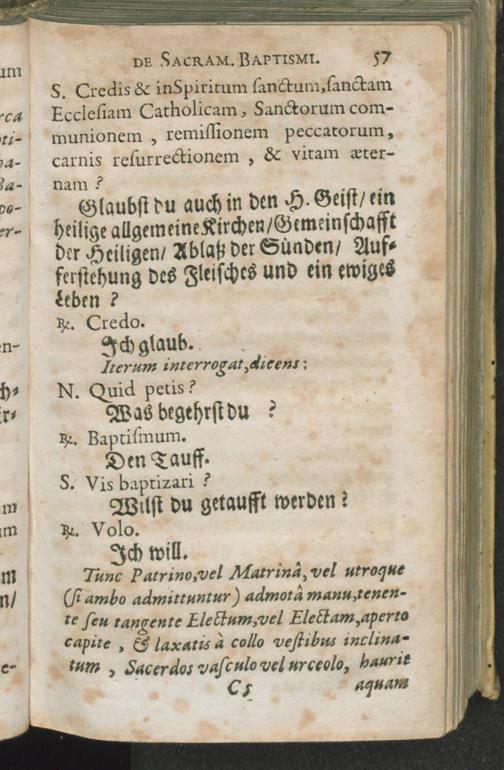 DE SACRAM. BAPTISMI. 57
S. Credis & inSpiritum ſanctum,ſanctam
Eccleſiam Catholicam, Sanctorum com-
munionem, remiſſionem peccatorum,
carnis reſurrectionem, & vitam æter-
nam?
Glaubſt du auch in den H. Geiſt/ ein
heilige allgemeine Kirchen/Gemeinſchafft
der Heiligen/ Ablaß der Sünden/ Auf-
ferſtehung des Fleiſches und ein ewiges
Leben?
℟. Credo.
Ich glaub.
Iterum interrogat,dicens:
N. Quid petis?
Was begehrſt du?
℟. Baptiſmum.
Den Tauff.
S. Vis baptizari?
Wilſt du getaufft werden?
℟. Volo.
Ich will.
Tunc Patrino,vel Matrinâ, vel utroque
(ſi ambo admittuntur) admotâ manu,tenen-
te ſeu tangente Electum,vel Electam,aperto
capite, & laxatis à collo veſtibus inclina-
tum, Sacerdos vaſculo vel urceolo, haurit
C5 aquam